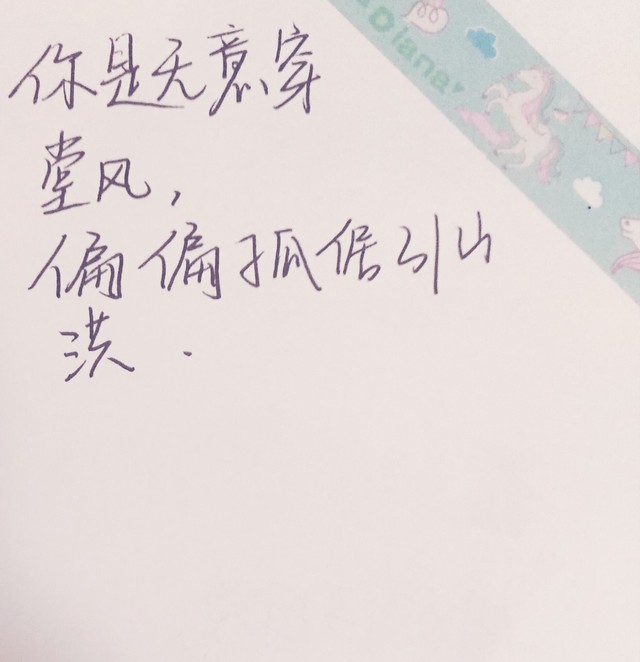 Diana
你是无意穿
堂风，
偏偏孤倨引山
洪.